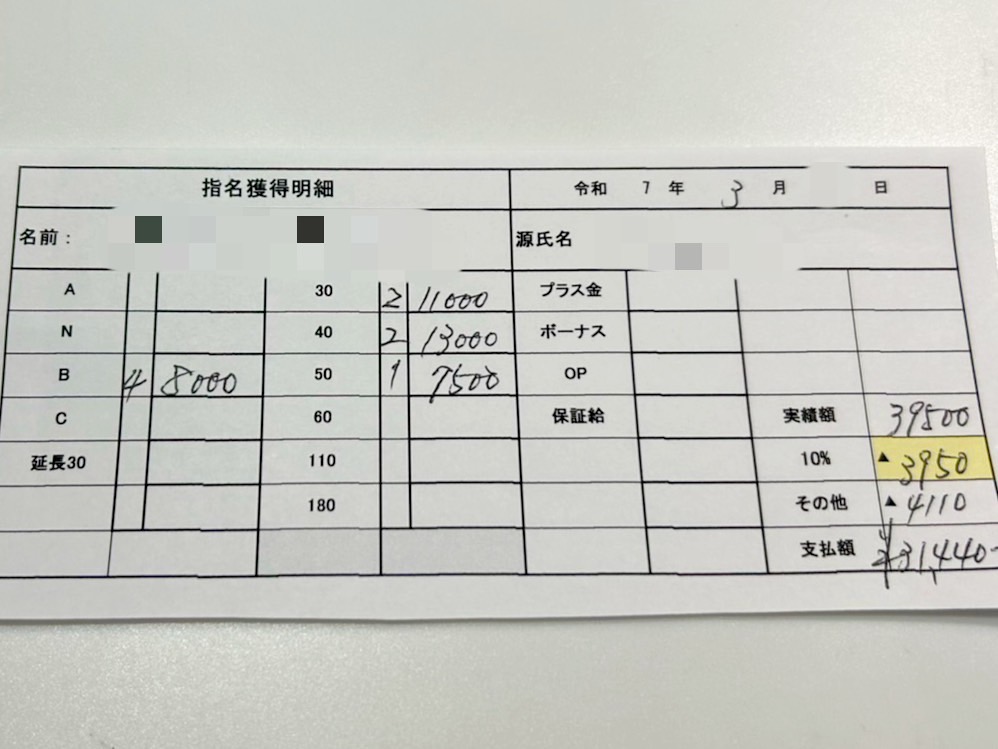 指名獲得明細 令和 7 年 3 月 日
名前： 源氏名
A 30 2 11000 プラス金
N 40 2 13000 ボーナス
B 4 8000 50 1 7500 OP
C 60 保証給 実績額 39500
延長30 110 10% ▲3950
180 その他 ▲4110
支払額 ¥31,440-